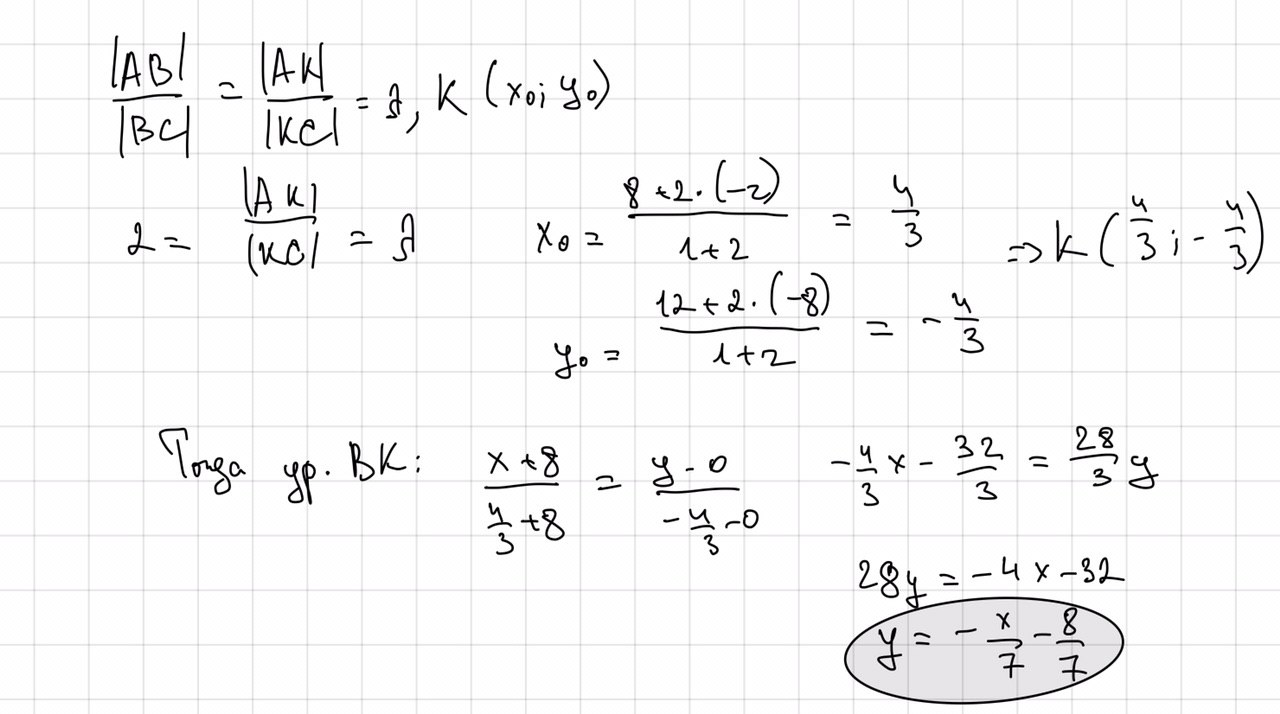 |AB|/|BC| = |AK|/|KC| = λ, K (x₀; y₀)
2 = |AK|/|KC| = λ
x₀ = (8+2·(-2))/(1+2) = 4/3
⇒ K (4/3; -4/3)
y₀ = (12+2·(-8))/(1+2) = -4/3
Тогда ур. BK: (x+8)/(4/3+8) = (y-0)/(-4/3-0)
-4/3x - 32/3 = 28/3 y
28y = -4x-32
y = -x/7 - 8/7